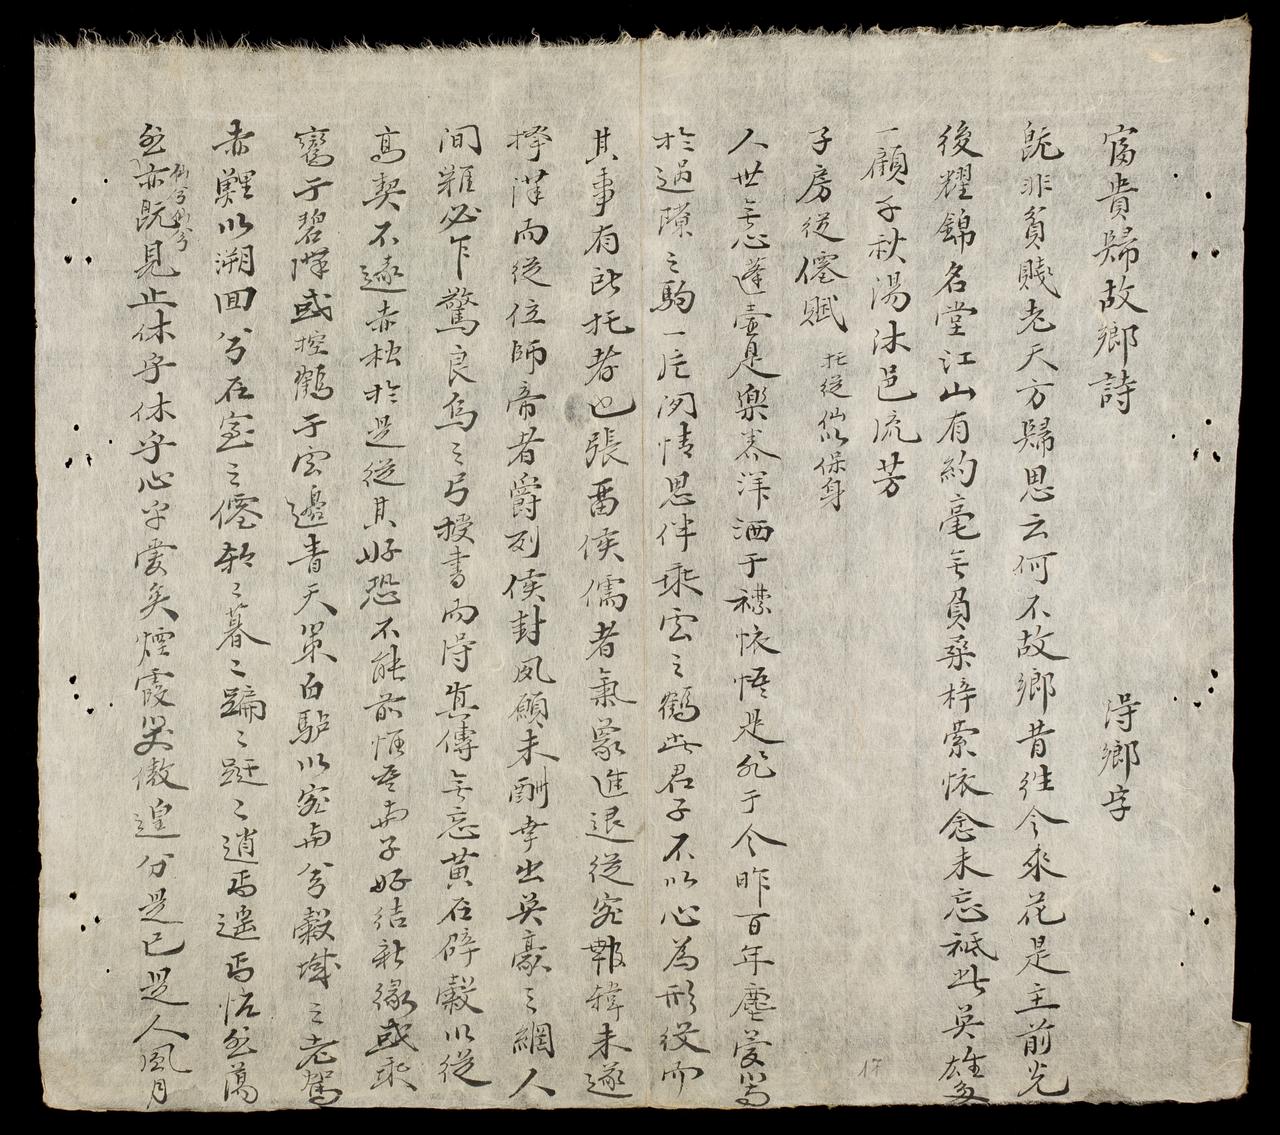 富貴歸故鄉詩 得鄉字
既非貧賤老天方歸思云何不故鄉昔往今來花是主前光
後耀錦名堂江山有約毫无負桑梓縈懷念未忘祗此英雄多
一顧千秋湯沐邑流芳
子房從僊賦 托從仙以保身
人世無恋蓬壺是樂恭洋洒于襟懷悟是非于今昨百年塵夢寄
於過隙之駒一片閑情思伴乘雲之鶴此君子不以心為形役而
其事有所托者也張畱侯儒者氣象進退從容報韓未遂
擇漢而從位師帝者爵列侯封夙願未酬幸出英豪之網人
间難必乍驚良鳥之弓授書而得真傳无忘黃石辟穀以從
高契不遠赤松於是從其好恐不能前恒吾与子好結新緣或乘
鸞于碧漢或控鶴于雲邊青天策白馿以容与兮穀城之老駕
赤鯉以溯回兮石室之僊 暮 蹁 跹 逍焉遙焉恬然蕩
然亦既見止休乎休乎心乎愛矣煙霞笑傲遑分是已是人風月
仙兮仙兮
17